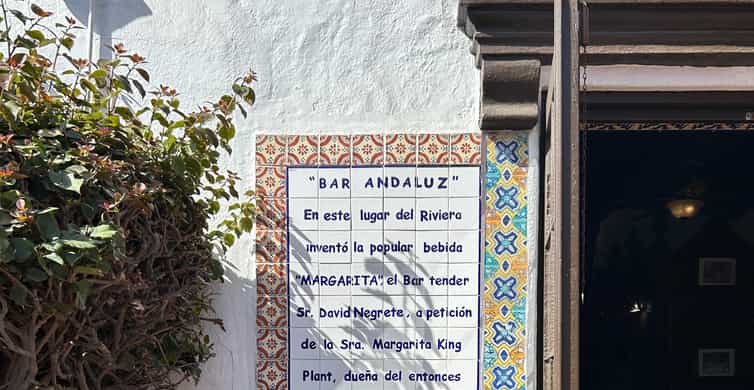 "BAR ANDALUZ"
En este lugar del Riviera
inventó la popular bebida
"MARGARITA", el Bar tender
Sr. David Negrete, a petición
de la Sra. Margarita King
Plant, dueña del entonces